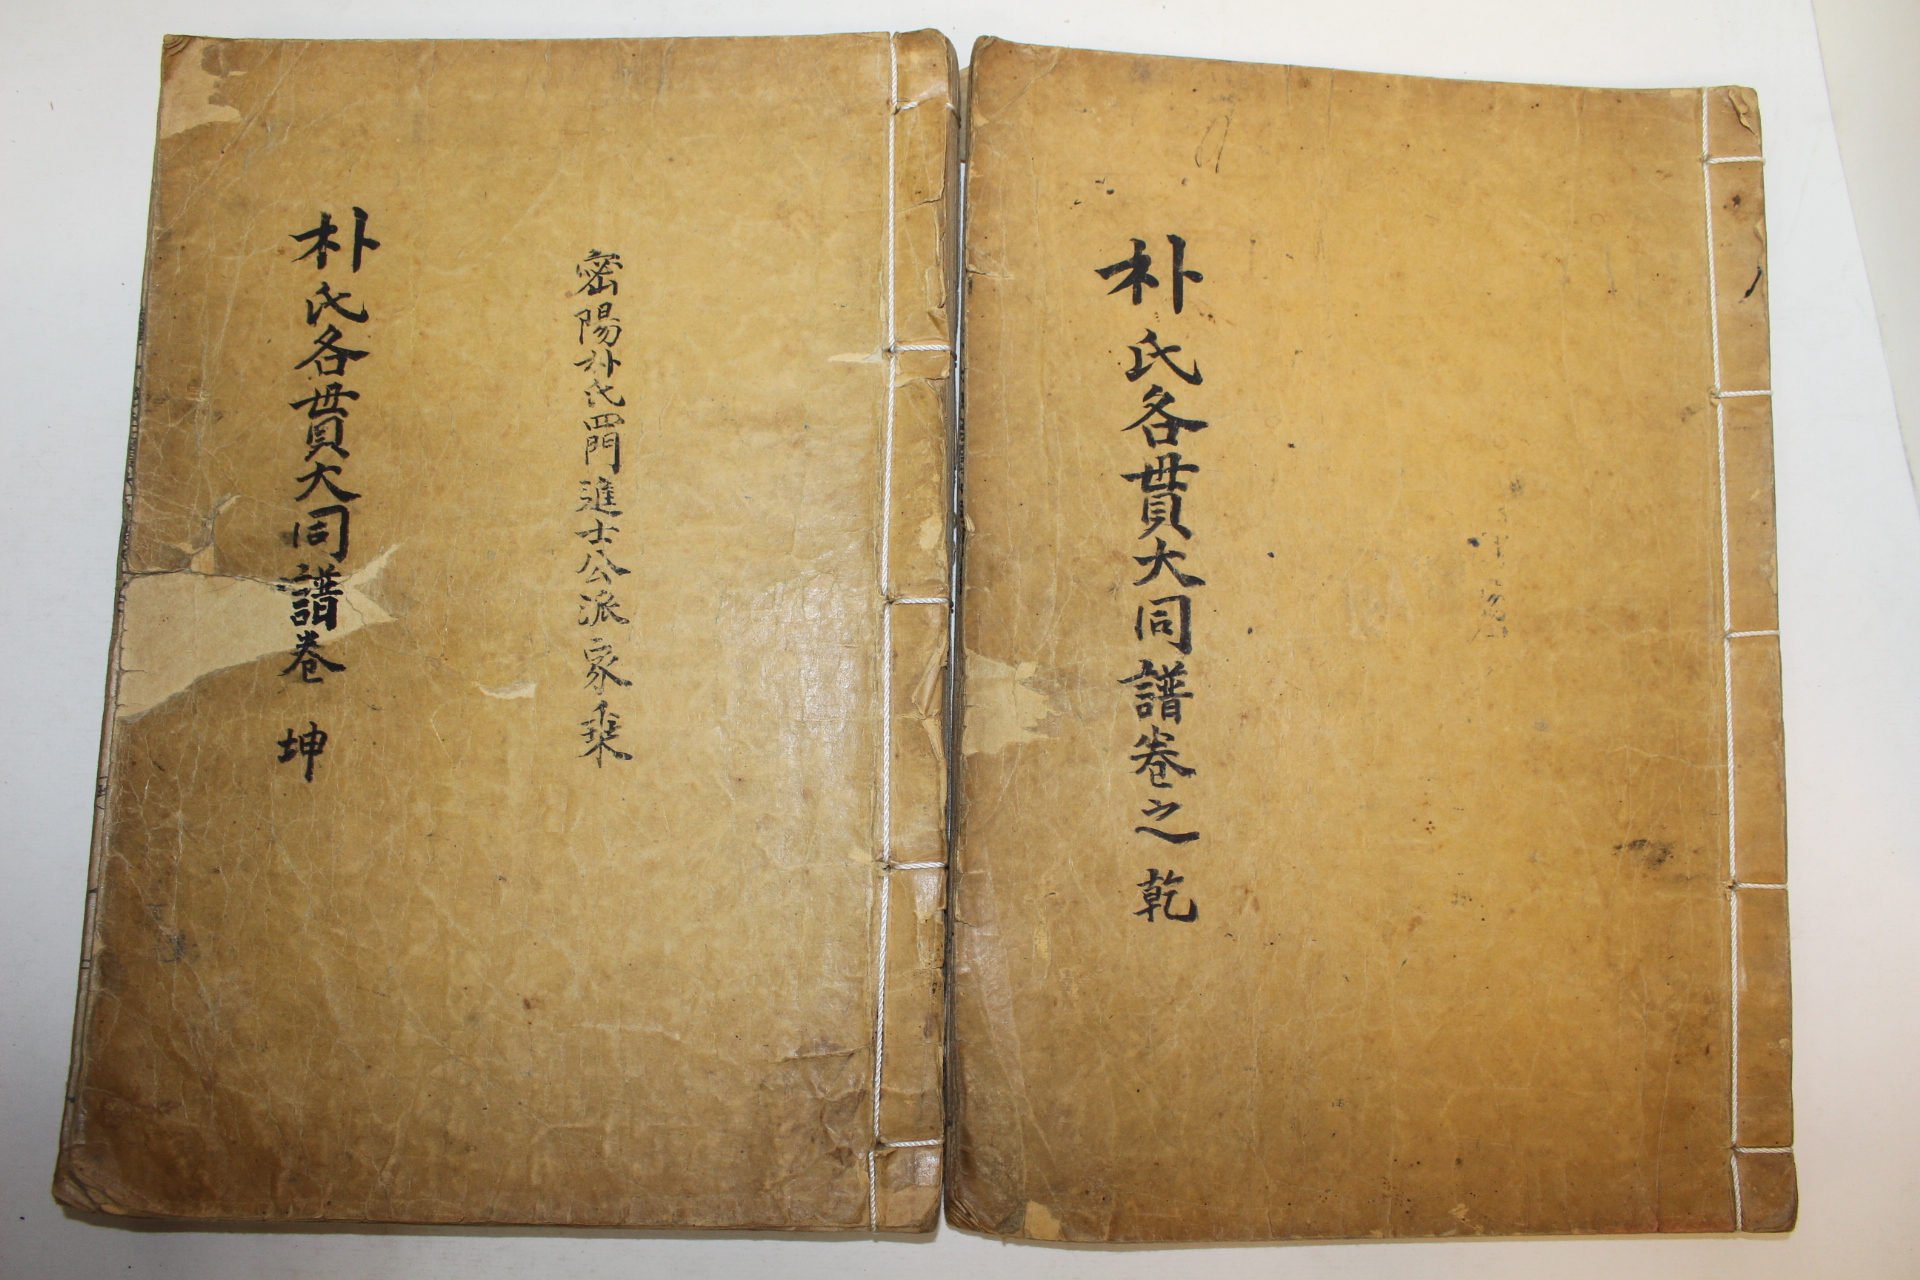 朴氏各貫大同譜卷之 乾
密陽朴氏四門進士公派家乘
朴氏各貫大同譜卷 坤